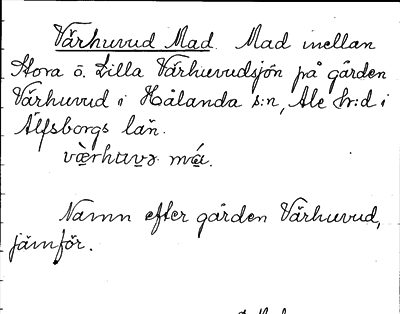 Vårhuvud Mad. Mad mellan
Stora o. Lilla Vårhuvudsjön på gården
Vårhuvud i Hålanda s:n, Ale hr:d i
Älfsborgs län.
Namn efter gården Vårhuvud,
jämför.